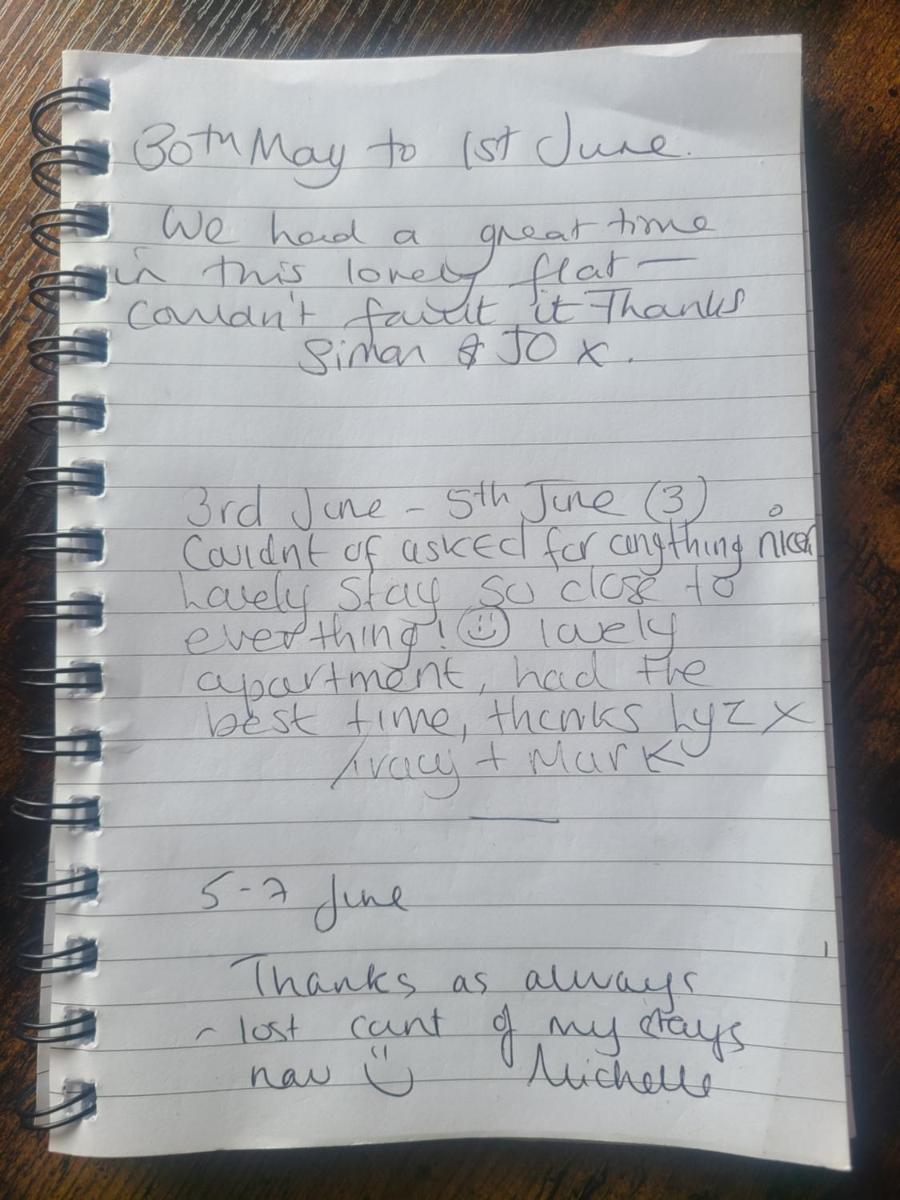 30th May to 1st June.
We had a great time
in this lovely flat —
couldn't fault it Thanks
Simon & JO x.
3rd June - 5th June (3)
Couldnt of asked for anything nicer
Lovely stay so close to
everthing! ☺ lovely
apartment, had the
best time, thanks Lyz x
Tracy + Mark
5-7 June
Thanks as always
- lost count of my stays
now ☺ Michelle